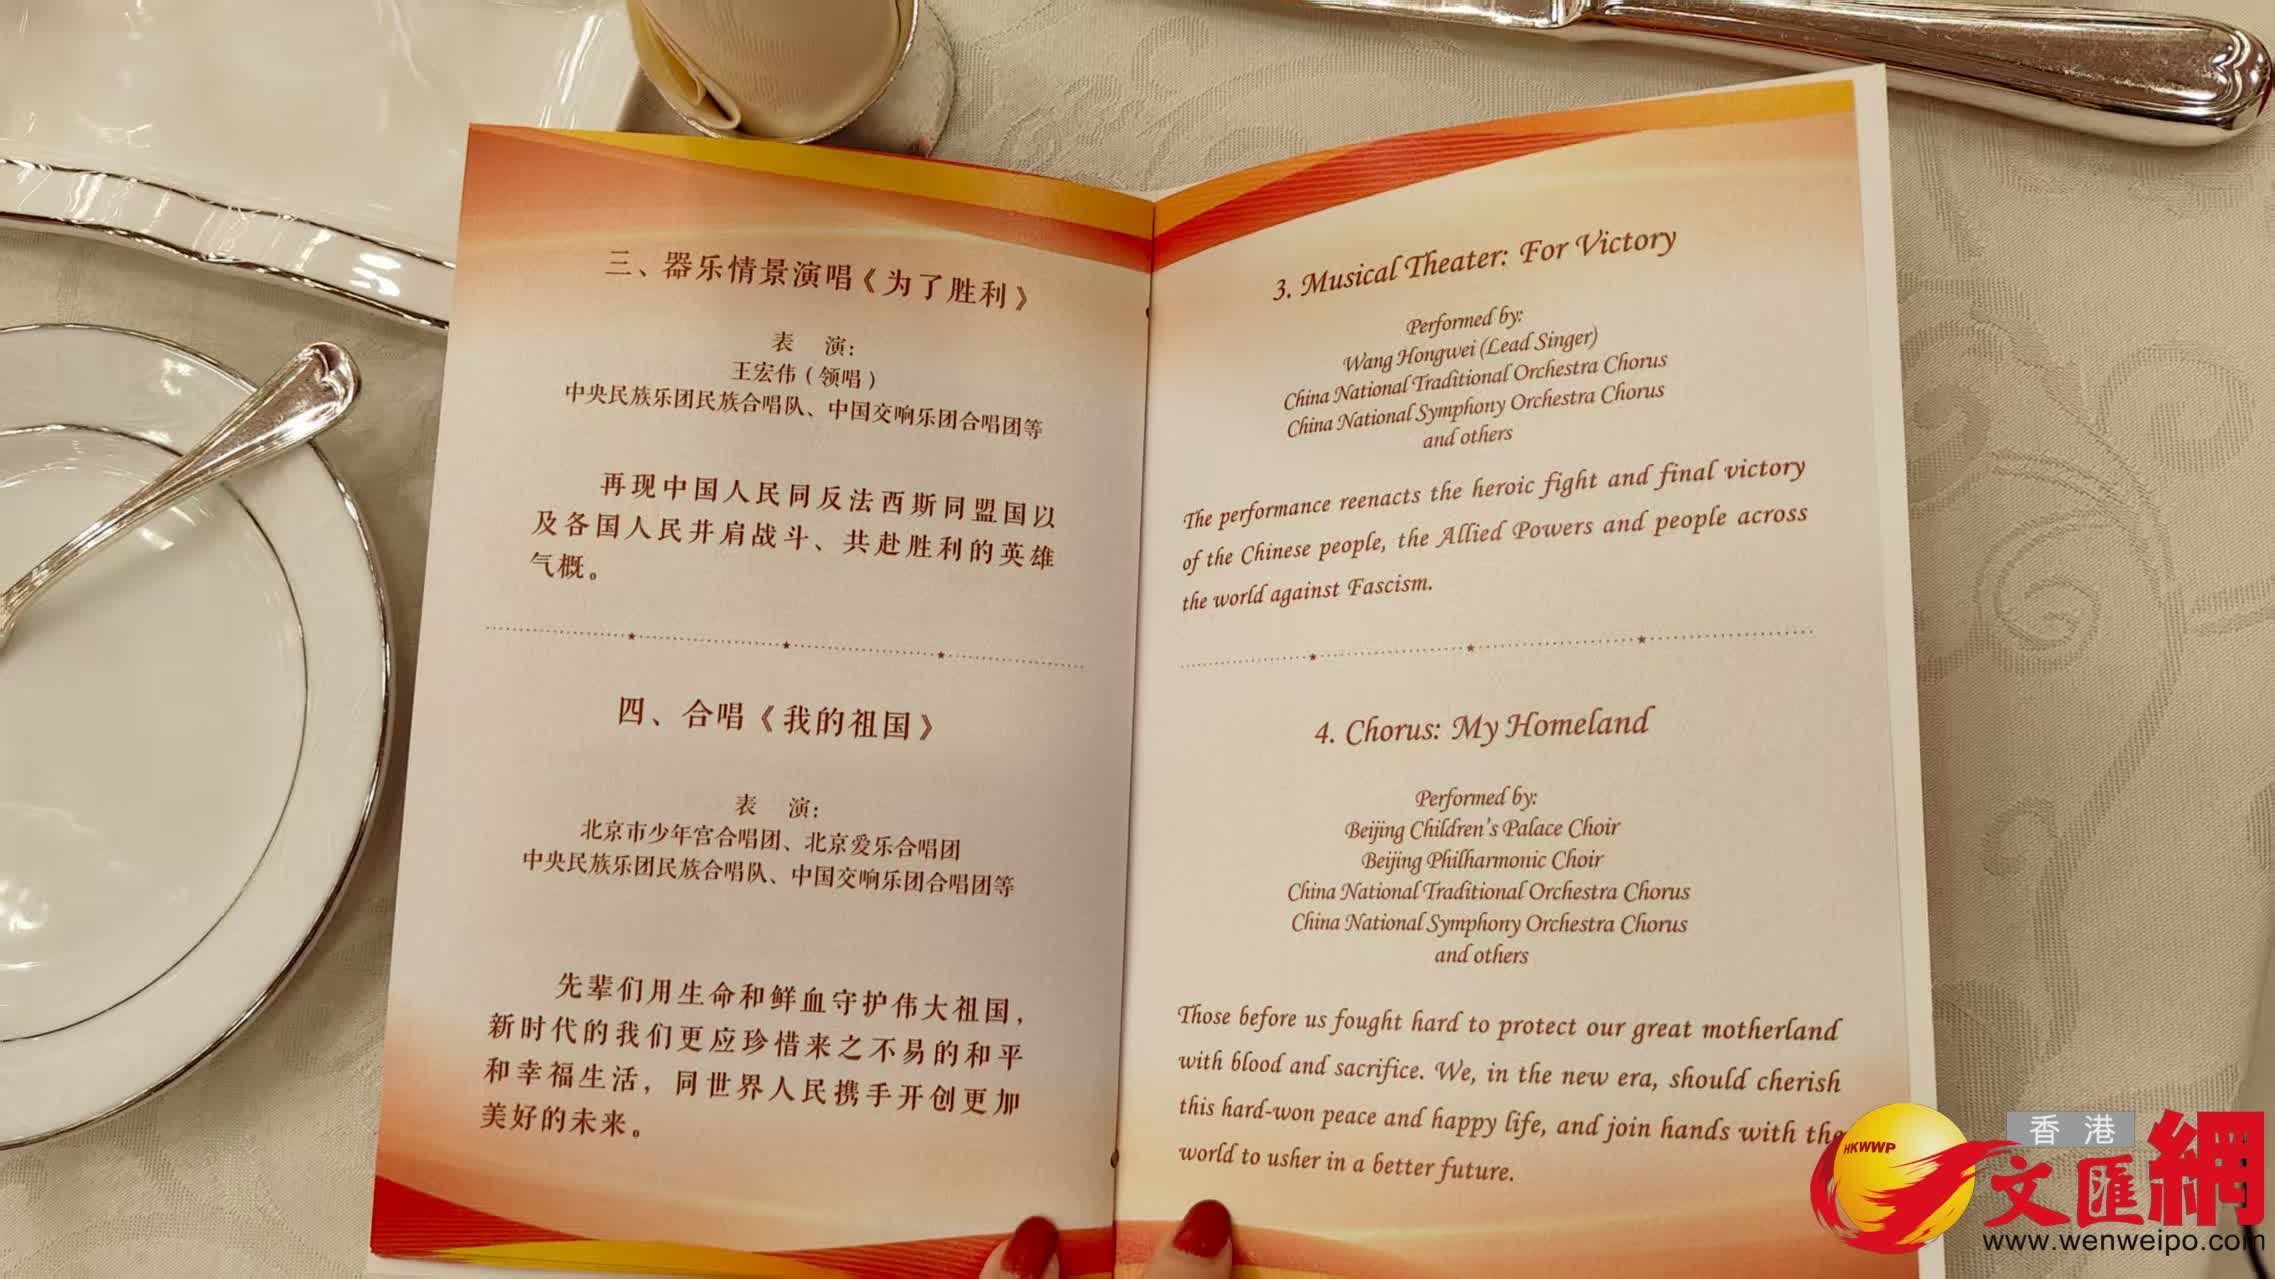 三、器乐情景演唱《为了胜利》
表 演：
王宏伟（领唱）
中央民族乐团民族合唱队、中国交响乐团合唱团等
再现中国人民同反法西斯同盟国以
及各国人民并肩战斗、共赴胜利的英雄
气概。
四、合唱《我的祖国》
表 演：
北京市少年宫合唱团、北京爱乐合唱团
中央民族乐团民族合唱队、中国交响乐团合唱团等
先辈们用生命和鲜血守护伟大祖国，
新时代的我们更应珍惜来之不易的和平
和幸福生活，同世界人民携手开创更加
美好的未来。
3. Musical Theater: For Victory
Performed by:
Wang Hongwei (Lead Singer)
China National Traditional Orchestra Chorus
China National Symphony Orchestra Chorus
and others
The performance reenacts the heroic fight and final victory
of the Chinese people, the Allied Powers and people across
the world against Fascism.
4. Chorus: My Homeland
Performed by:
Beijing Children's Palace Choir
Beijing Philharmonic Choir
China National Traditional Orchestra Chorus
China National Symphony Orchestra Chorus
and others
Those before us fought hard to protect our great motherland
with blood and sacrifice. We, in the new era, should cherish
this hard-won peace and happy life, and join hands with the
world to usher in a better future.
HKWWP
香港
文匯網
www.wenweipo.com